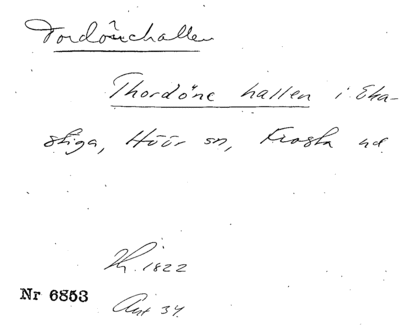 Tordönehallen
Thordöne hallen i Eka-
stiga, Höör sn, Frosta hd
Th. 1822
Nr 6853
Ant 34.